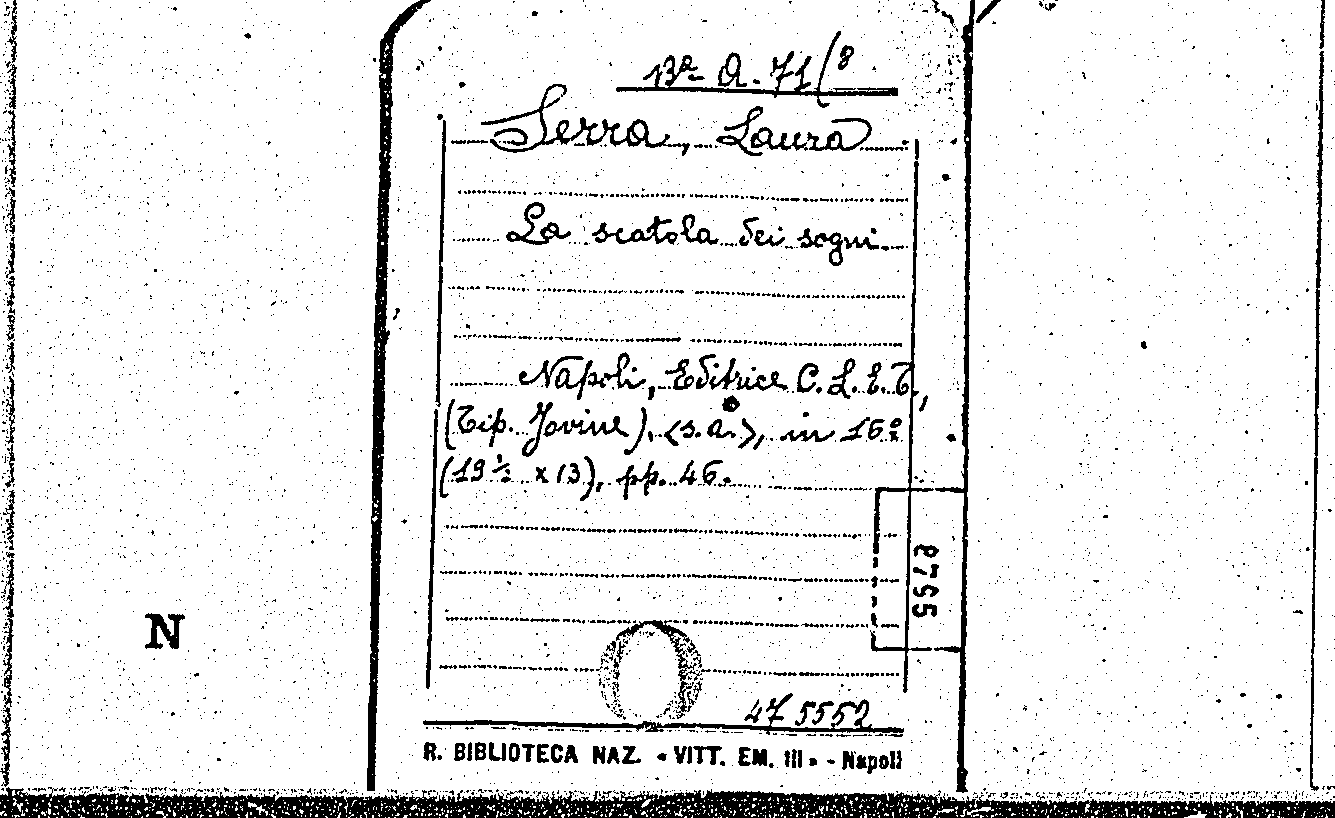 Bª A. 71(8
Serra, Laura
La scatola dei sogni.
Napoli, Editrice C.L.E.T.,
(Tip. Jovine), <s.a.>, in 16º
(19½ x 13), pp. 46.
8755
N
47 5552
R. BIBLIOTECA NAZ. « VITT. EM. III » - Napoli